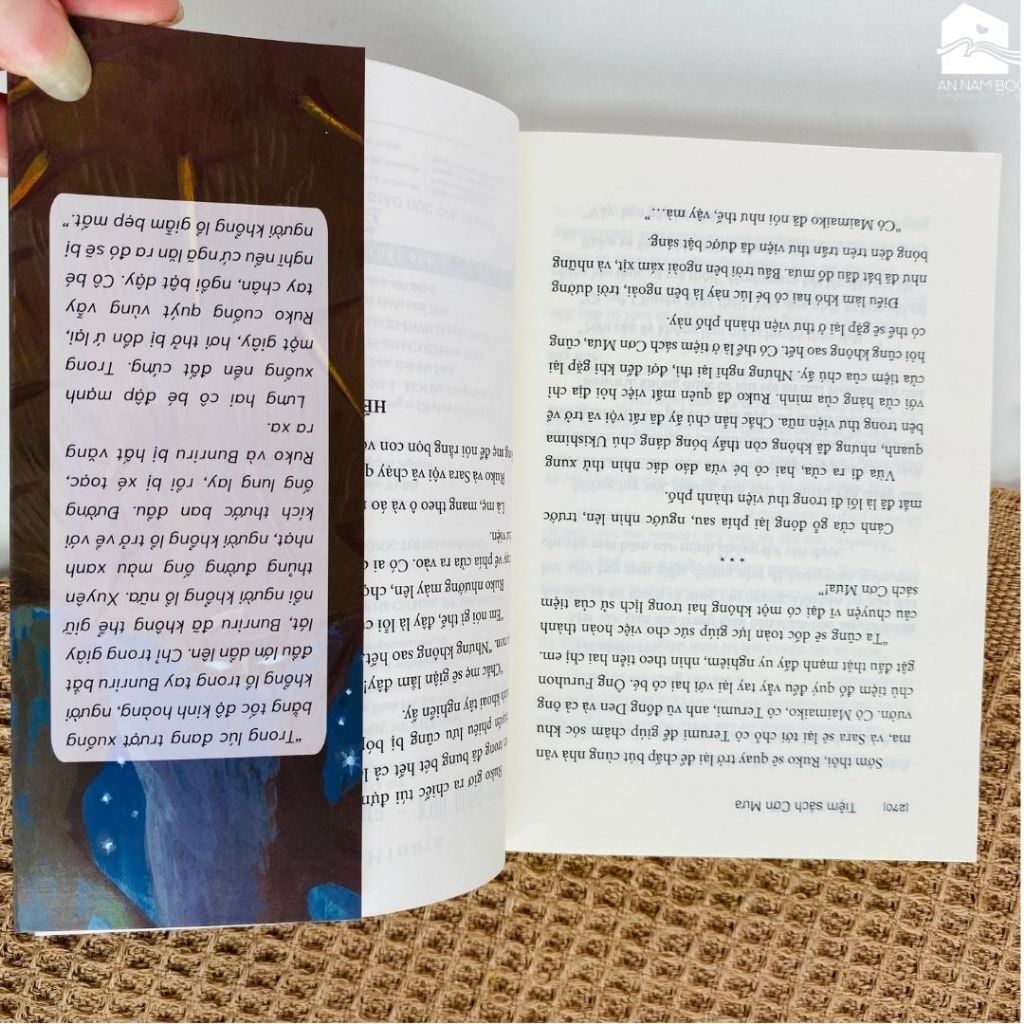 AN NAM BOO
[270] Tiệm sách Cơn Mưa
Sớm thôi, Ruko sẽ quay trở lại để chấp bút cùng nhà văn
ma, và Sara sẽ lại tới chỗ cô Terumi để giúp chăm sóc khu
vườn. Cô Maimaiko, cô Terumi, anh vũ đồng Den và cả ông
chủ tiệm đồ quý đều vẫy tay lại với hai cô bé. Ông Furuhon
gật đầu thật mạnh đầy uy nghiêm, nhìn theo tiễn hai chị em.
“Ta cũng sẽ dốc toàn lực giúp sức cho việc hoàn thành
câu chuyện vĩ đại có một không hai trong lịch sử của tiệm
sách Cơn Mưa!”
***
Cánh cửa gỗ đóng lại phía sau, ngước nhìn lên, trước
mắt đã là lối đi trong thư viện thành phố.
Vừa đi ra cửa, hai cô bé vừa dáo dác nhìn thử xung
quanh, nhưng đã không còn thấy bóng dáng chú Ukishima
bên trong thư viện nữa. Chắc hẳn chú ấy đã rất vội và trở về
với cửa hàng của mình. Ruko đã quên mất việc hỏi địa chỉ
của tiệm của chú ấy. Nhưng nghĩ lại thì, đợi đến khi gặp lại
hỏi cũng không sao hết. Có thể là ở tiệm sách Cơn Mưa, cũng
có thể sẽ gặp lại ở thư viện thành phố này.
Điều làm khó hai cô bé lúc này là bên ngoài, trời dường
như đã bắt đầu đổ mưa. Bầu trời bên ngoài xám xịt, và những
bóng đèn trên trần thư viện đã được bật sáng.
“Cô Maimaiko đã nói như thế, vậy mà...”
Ruko giơ ra chiếc túi đựn
trong đã bung bét hết cả l
phiêu lưu cũng bị bộ
khoai tây nghiền ấy.
“Chắc mẹ sẽ giận lắm đây!
“Nhưng không sao hết
“Em nói gì thế, đây là lỗi c
Ruko nhướng mày lên, chọ
về phía cửa ra vào. Có ai đ
Là mẹ, mang theo ô và áo m
Ruko và Sara vội vã chạy q
mẹ để nói rằng bọn con vớ
HẾ
“Trong lúc đang trượt xuống
bằng tốc độ kinh hoàng, người
khổng lồ trong tay Bunriru bắt
đầu lớn dần lên. Chỉ trong giây
lát, Bunriru đã không thể giữ
nổi người khổng lồ nữa. Xuyên
thủng đường ống màu xanh
nhạt, người khổng lồ trở về với
kích thước ban đầu. Đường
ống lung lay, rồi bị xé toạc,
Ruko và Bunriru bị hất văng
ra xa.
Lưng hai cô bé đập mạnh
xuống nền đất cứng. Trong
một giây, hơi thở bị dồn ứ lại,
Ruko cuống quýt vùng vẫy
tay chân, ngồi bật dậy. Cô bé
nghĩ nếu cứ ngã lăn ra đó sẽ bị
người khổng lồ giẫm bẹp mất.”